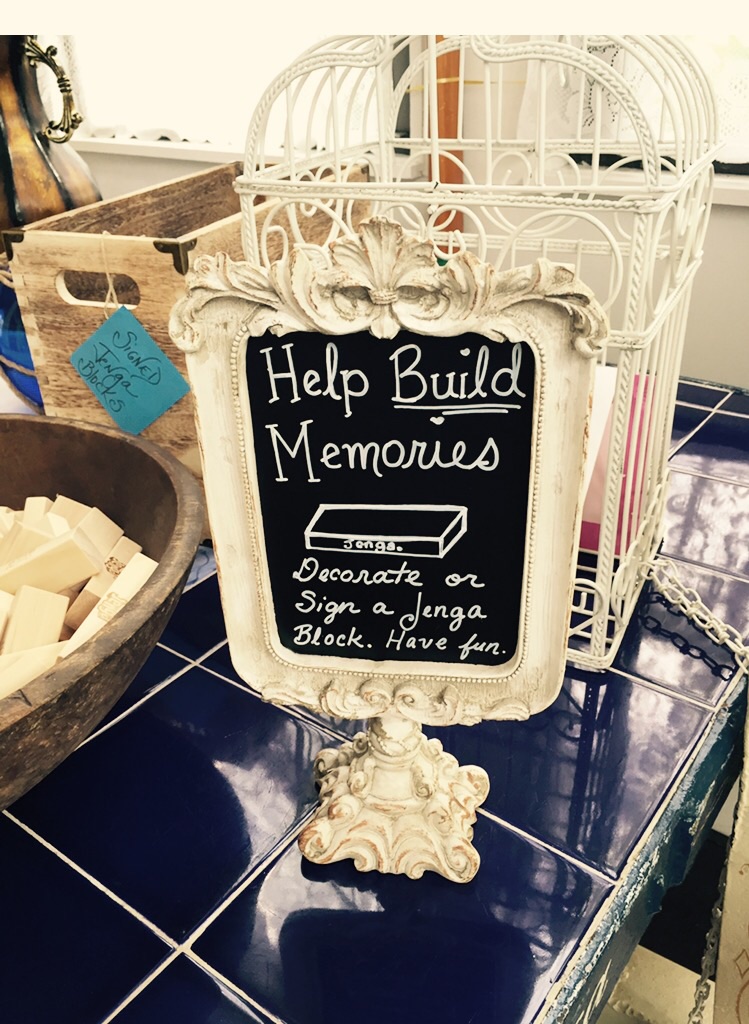 SIGNED
Jenga
Blocks
Help Build
Memories
Jenga.
Decorate or
Sign a Jenga
Block. Have fun.